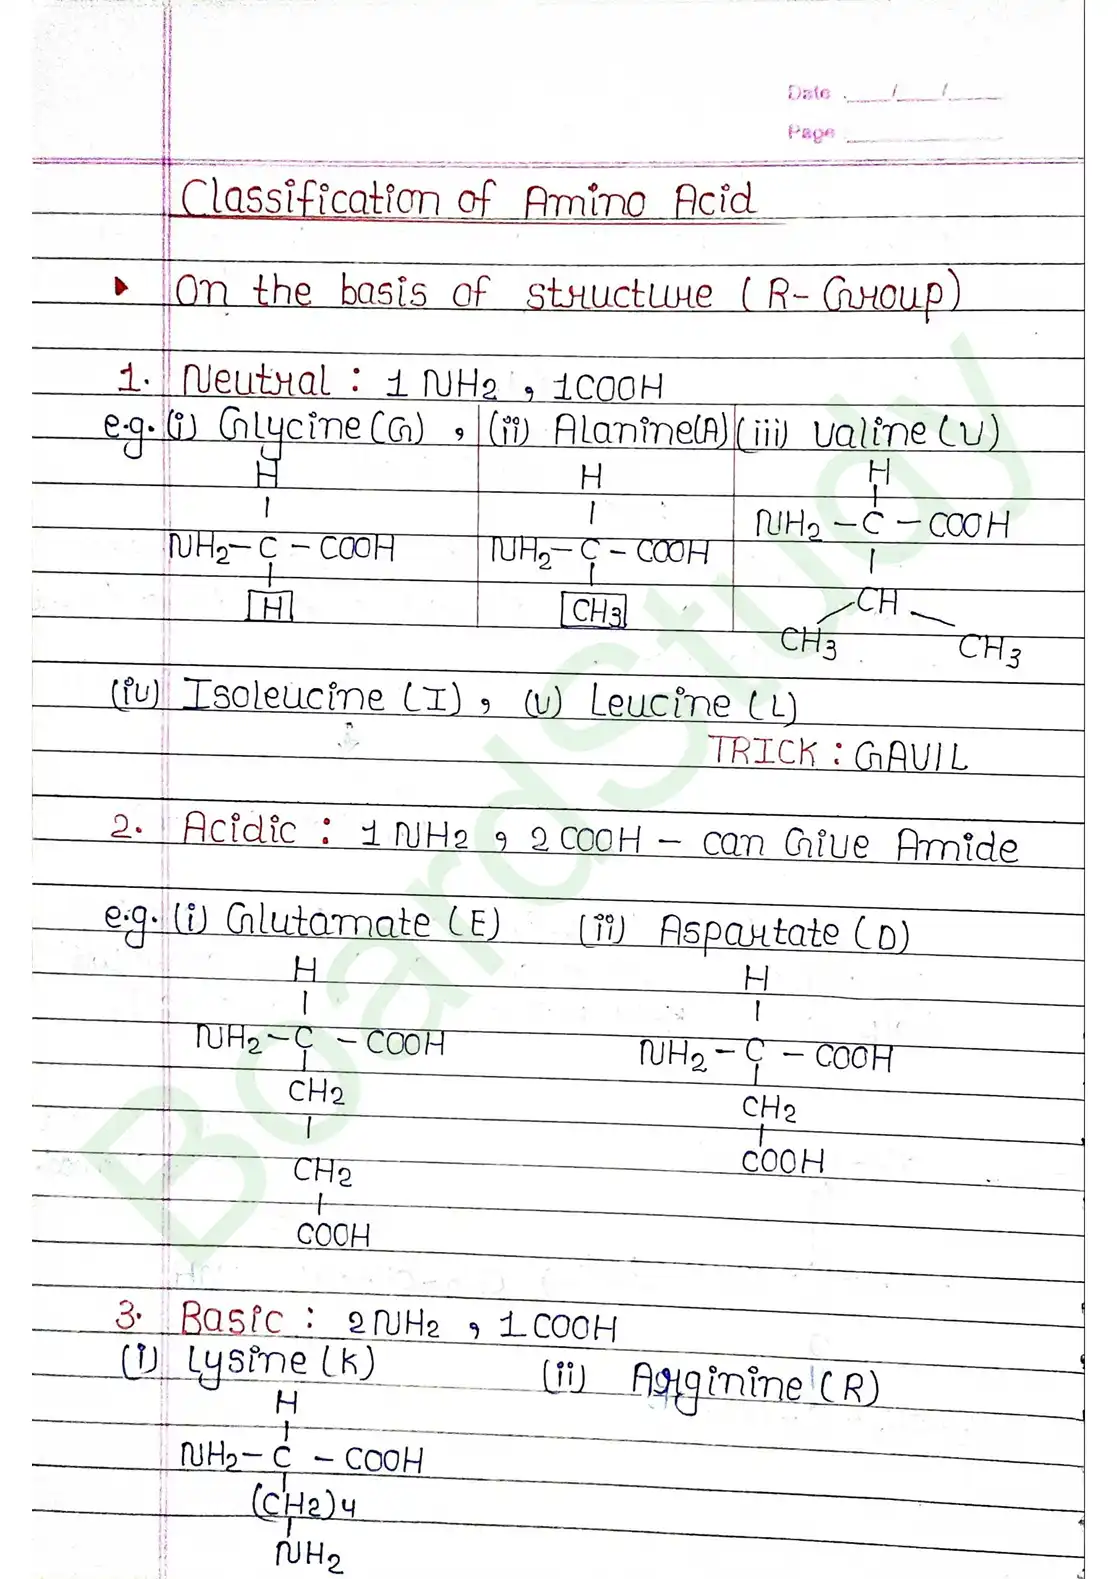 Date ___/___/___
Page ___
Classification of Amino Acid
On the basis of structure (R-Group)
1. Neutral : 1 NH2 , 1COOH
e.g. (i) Glycine (G) , (ii) Alanine(A) (iii) Valine (V)
H H H
NH2 – C – COOH NH2 – C – COOH NH2 – C – COOH
H CH3 CH
CH3 CH3
(iv) Isoleucine (I) , (v) Leucine (L)
TRICK : GAVIL
2. Acidic : 1 NH2 , 2 COOH – can Give Amide
e.g. (i) Glutamate (E) (ii) Aspartate (D)
H H
NH2 – C – COOH NH2 – C – COOH
CH2 CH2
CH2 COOH
COOH
3. Basic : 2 NH2 , 1 COOH
(i) Lysine (K) (ii) Arginine (R)
H
NH2 – C – COOH
(CH2)4
NH2
BoardStudy